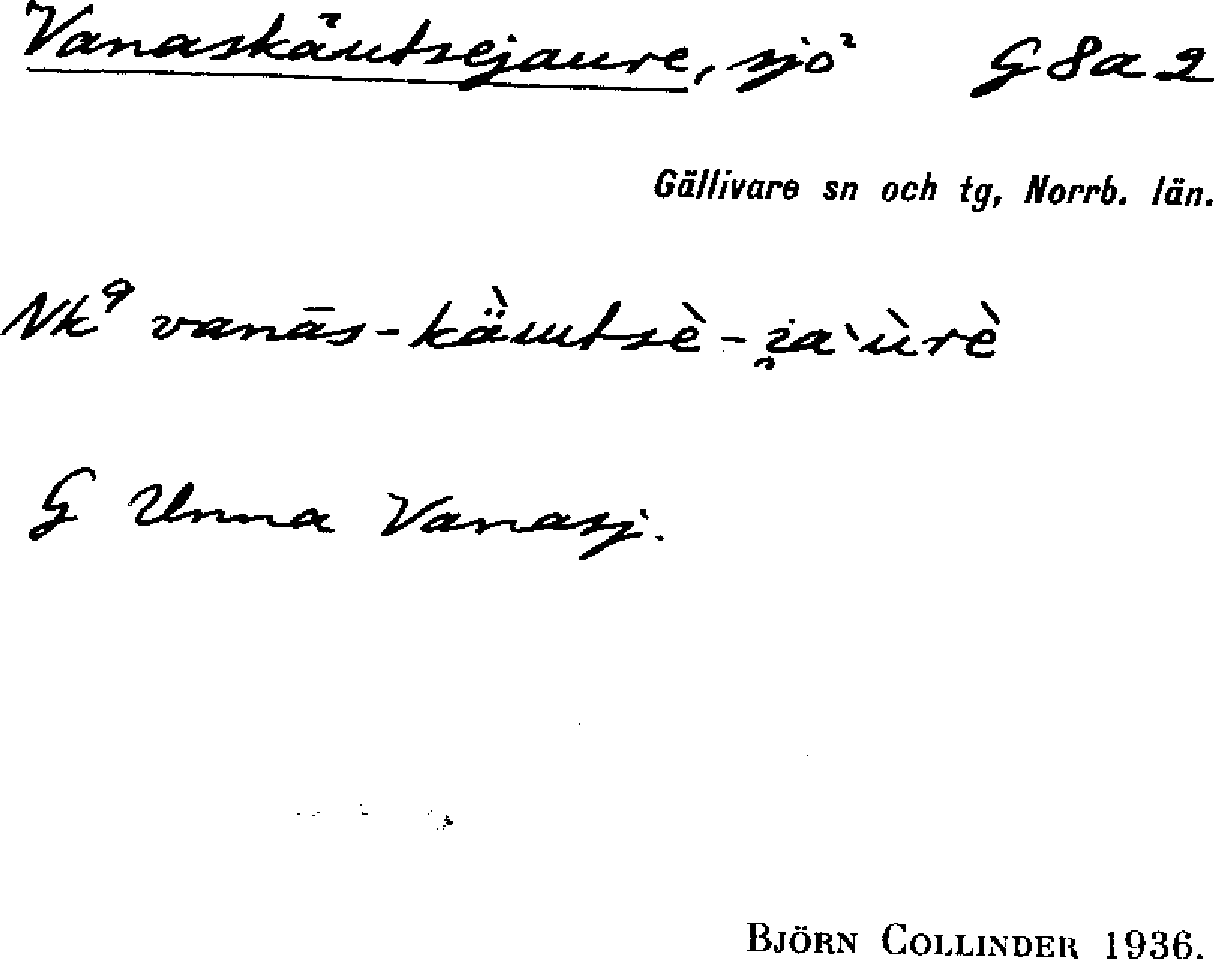 Vanaskäutsejaure, sjö G8a2
Gällivare sn och tg, Norrb. län.
Nk⁹ vanās-kä̀utsè-i̯a`ùrè
G Unna Vanasj.
BJÖRN COLLINDER 1936.